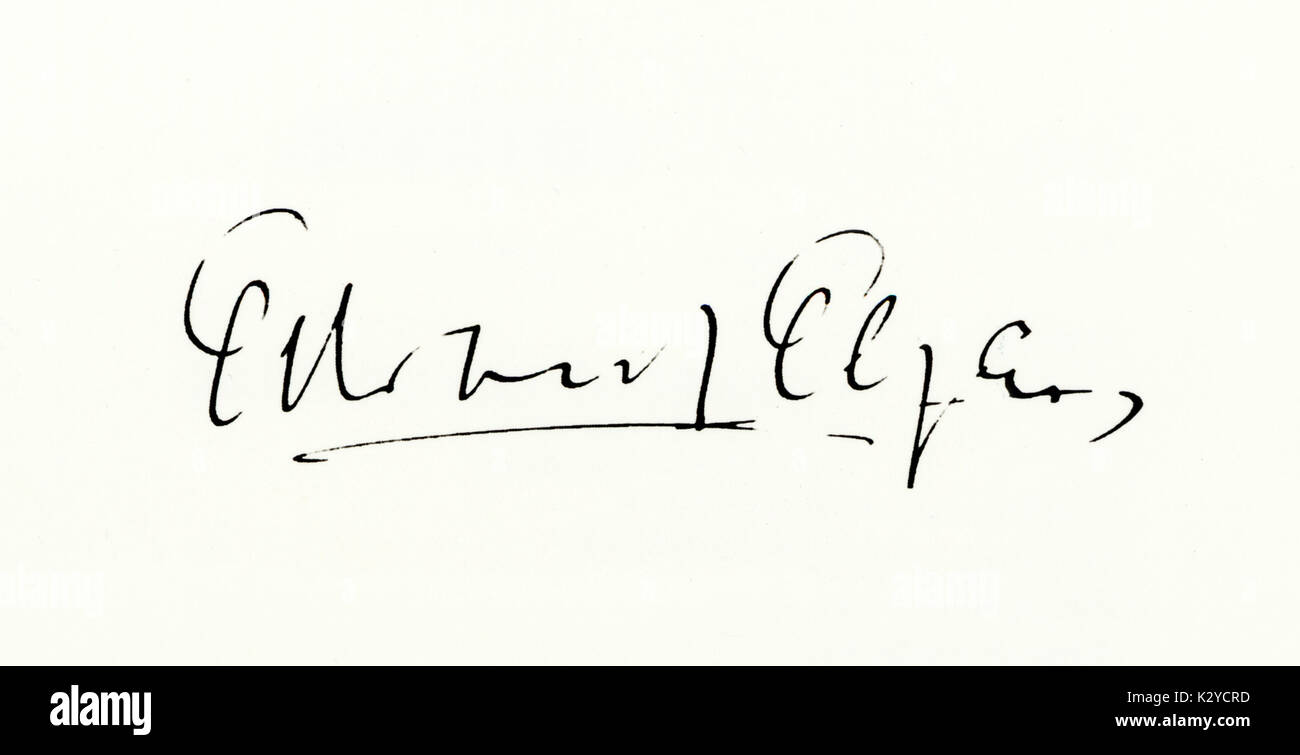 Edward Elgar,
alamy
Image ID: K2YCRD
www.alamy.com